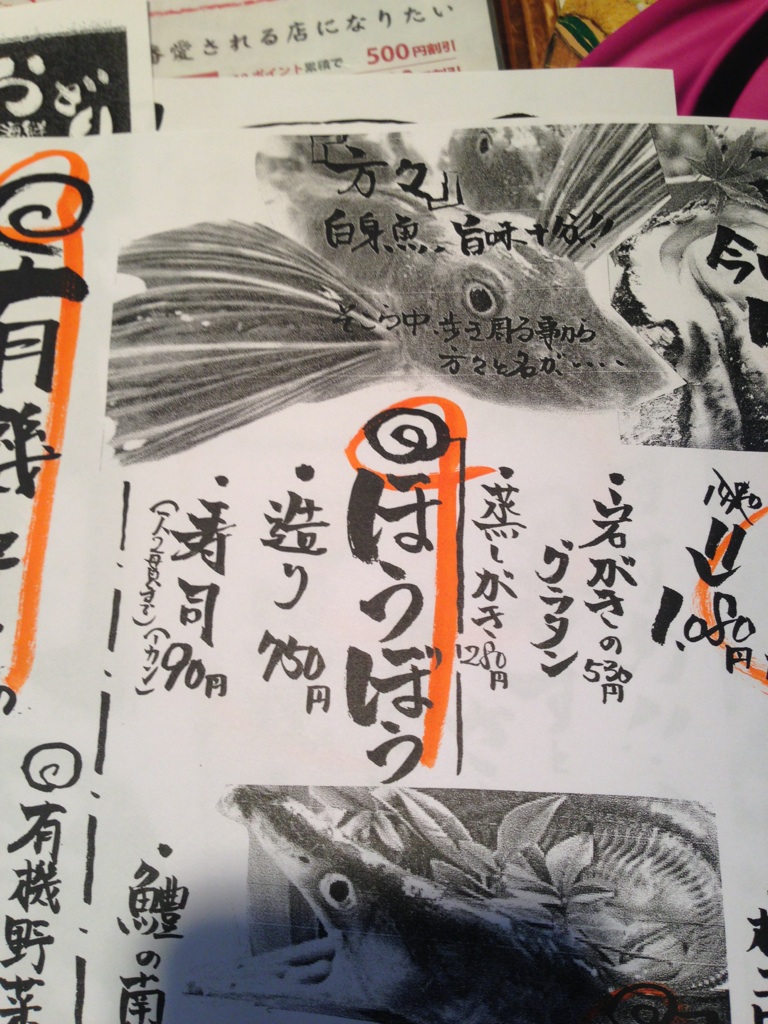 愛される店になりたい
ポイント累積で 500円割引
おどり
海鮮
「方々」
白身魚、旨味十分!!
そこら中、歩き周る事から
方々と名が・・・・
1,080円
・岩がきの
グラタン
530円
・蒸しがき 1280円
ほうぼう
・造り 750円
・寿司 90円
(一人2貫まで)(一カン)
十月
有機野菜
・鱧の南